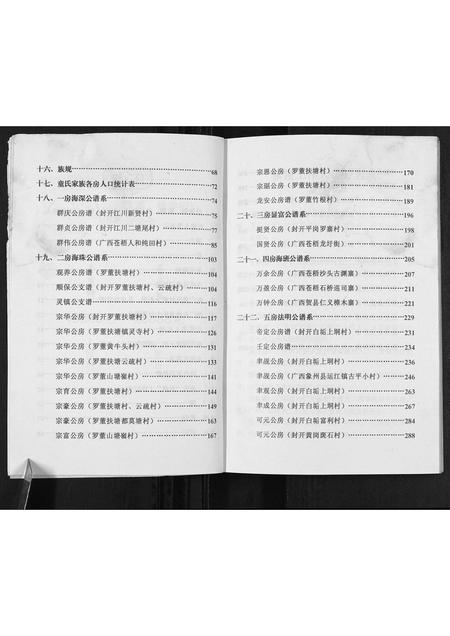 十六、族规……68
十七、童氏家族各房人口统计表……72
十八、一房海深公谱系……74
群庆公房谱（封开江川新贤村）……75
群贞公房（封开江川二塘尾村）……77
群伟公房谱（广西苍梧人和纯田村）……85
十九、二房海珠公谱系……103
观养公房谱（罗董扶塘村）……104
顺保公支谱（封开罗董扶塘村、云疏村）……104
灵镇公支谱……116
宗华公房（封开罗董扶塘村）……117
宗华公房（罗董扶塘镇灵寺村）……126
宗华公房（罗董黄牛头村）……131
宗华公房（罗董扶塘云疏村）……133
宗华公房（罗董山塘嶺村）……141
宗育公房（罗董扶塘村）……144
宗豪公房（罗董扶塘村、云疏村）……149
宗豪公房（罗董扶塘都莫塘村）……163
宗富公房（罗董山塘嶺村）……167
宗恩公房（罗董扶塘村）……170
宗琚公房（罗董扶塘村）……181
龙安公房（罗董竹根村）……189
二十、三房显富公谱系……196
挺贤公房（封开平岗罗寨村）……196
国贤公房（广西苍梧龙圩街）……201
二十一、四房海斑公谱系……205
万余公房（广西苍梧沙头古渊寨）……205
万盈公房（广西苍梧石桥巡司寨）……211
万钟公房（广西贺县仁义樟木寨）……221
二十二、五房法明公谱系……229
帝定公房谱（封开白垢上垌村）……231
壬定公房谱……234
聿战公房（封开白垢上垌村）……236
聿战公房（广西象州县运江镇古平小村）……246
聿观公房（封开白垢上垌村）……263
聿成公房（封开白垢上垌村）……267
可元公房（封开白垢富利村）……287
可元公房（封开黄岗斑石村）……288